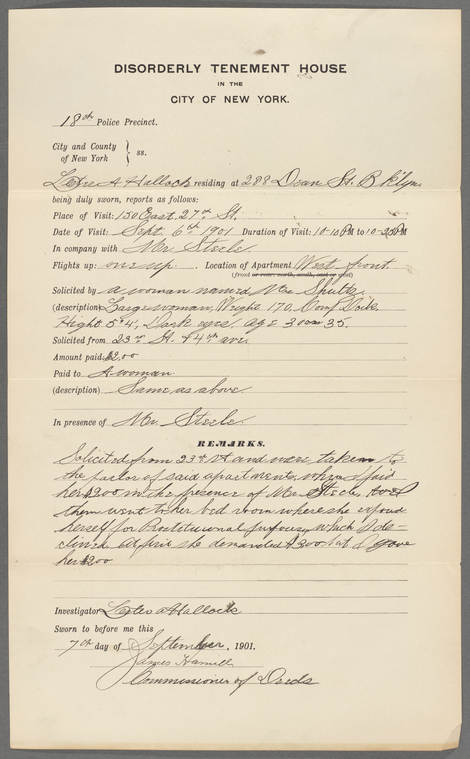 DISORDERLY TENEMENT HOUSE
IN THE
CITY OF NEW YORK.
18th Police Precinct.
City and County
of New York } ss.
A Hallock residing at 288 Dean St. B'klyn
being duly sworn, reports as follows:
Place of Visit: 150 East 27th St.
Date of Visit: Sept. 6th 1901 Duration of Visit: 10-10 PM to 10-25 PM
In company with Mr. Steele
Flights up: one up. Location of Apartment West front.
(front or rear: north, south, east or west)
Solicited by a woman named Mrs Shultz.
(description) Large woman, Weight 170, Comp Dark,
Hight 5"4', Dark eyes, age 30 35.
Solicited from 23rd St. & 4th ave.
Amount paid: $2.00
Paid to A woman
(description) Same as above
In presence of Mr. Steele.
REMARKS.
Solicited from 23rd St and were taken to
the parlor of said apartments, where I paid
her $2.00 in the presence of Mr. Steele,
then went to her bed room where she exposed
herself for Prostitutional purposes, which I de-
clined. At first she demanded $3.00 but I gave
her $2.00
Investigator A Hallock
Sworn to before me this
7th day of September, 1901.
James Hamill
Commissioner of Deeds